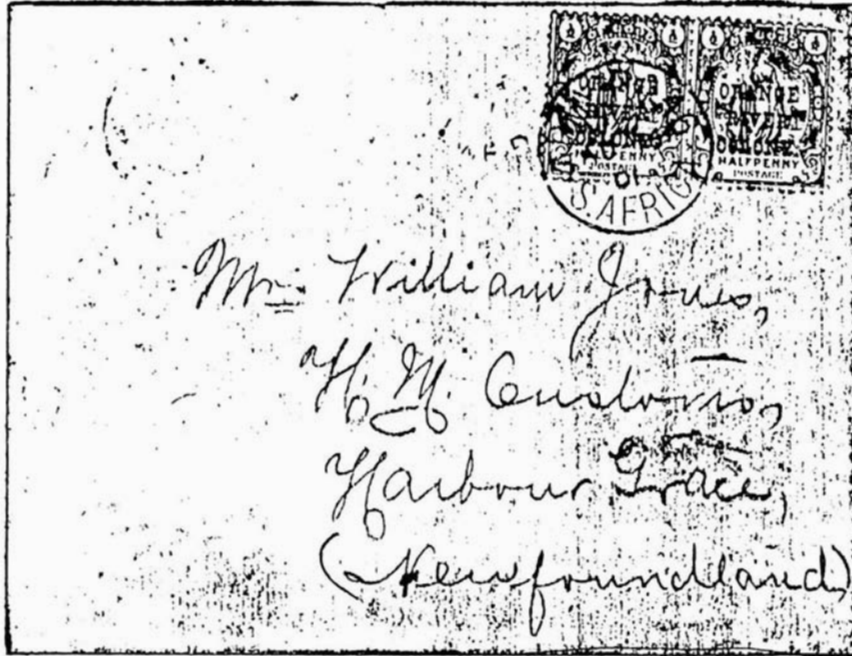 ½ ½ ½ ½
ORANGE
RIVER
COLONY
HALFPENNY
POSTAGE
ORANGE
RIVER
COLONY
HALFPENNY
POSTAGE
01
S. AFRICA
Mr. William Jones,
H. M. Customs,
Harbour Grace,
(Newfoundland)